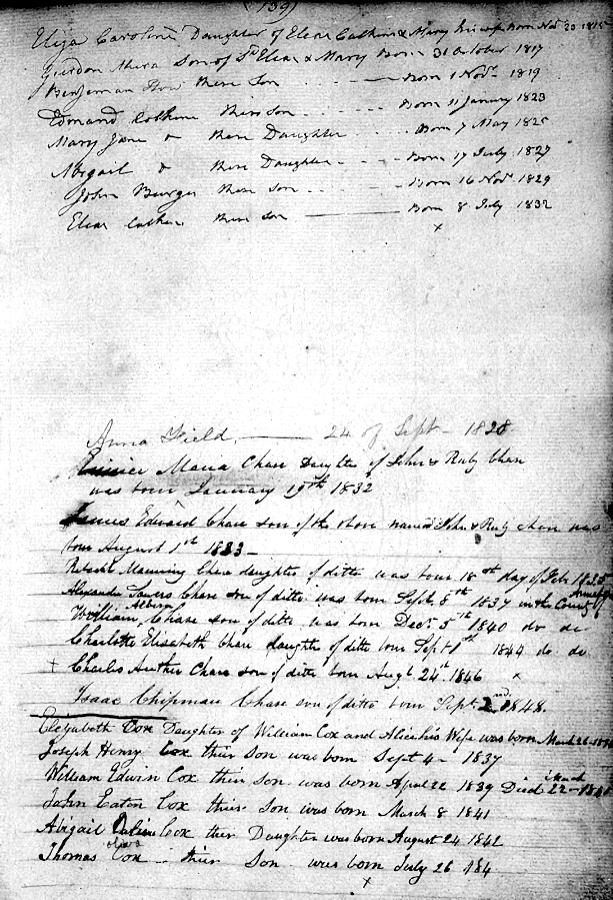 (139)
Eliza Caroline Daughter of Elear Calkins & Mary his wife Born Nov 20 1815
Gurdon Ahira Son of Sd Elear & Mary Born 31 October 1817
Benjaman How there Son Born 1 Novr 1819
Edmond Calkins there son Born 11 January 1823
Mary Jane there Daughter Born 7 May 1825
Abigail there Daughter Born 17 July 1827
John Burges there son Born 16 Novr 1829
Elear Calkins there son Born 8 July 1832
x
Anna Field, 24 of Sept 1828
Maria Chase Daughter of John & Ruby Chase
was born January 19th 1832
James Edward Chase son of the above named John & Ruby Chase was
born August 1st 1833
Manning Chase daughter of ditto was born 18th day of Feb 1835
Alexander Chase son of ditto was born Sept 8th 1837 in the County of
William Chase son of ditto was born Decr 5th 1840 do do
Charlotte Elisabeth Chase daughter of ditto born Sept 1844 do do
+ Charles Author Chase son of ditto born Augt 24st 1846 x
Isaac Chipman Chase son of ditto born Sept 2nd 1848.
Elizabeth Cox Daughter of William Cox and Alice his Wife was born March 26
Joseph Henry Cox thier Son was born Sept 4 - 1837
William Edwin Cox thier son was born April 22 1839 Died March 22
John Eaton Cox thier Son was born March 8 1841
Abigail Cox ther Daughter was born August 24 1842
Thomas Cox thier Son was born July 26 184
x